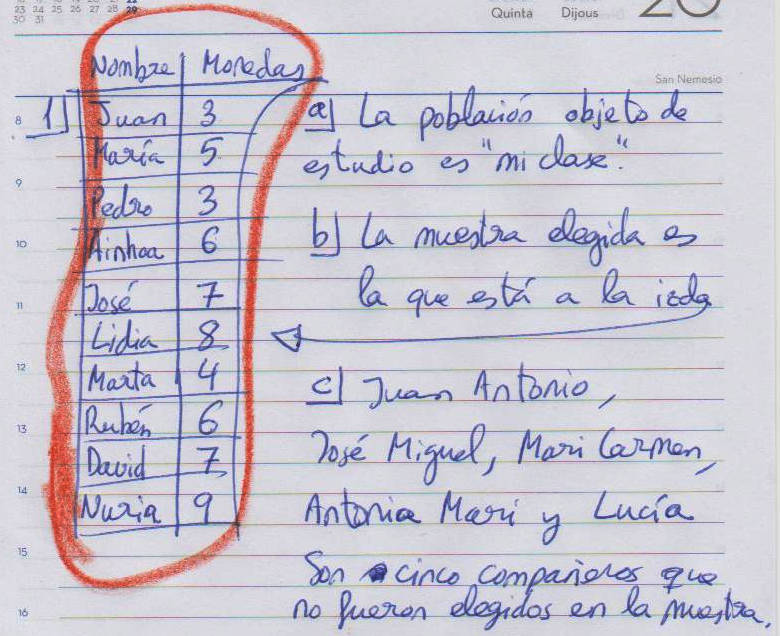 23 24 25 26 27 28 29
30 31
Quinta Dijous
20
San Nemesio
Nombre Monedas
1) Juan 3
María 5
Pedro 3
Ainhoa 6
José 7
Lidia 8
Marta 4
Rubén 6
David 7
Nuria 9
a) La población objeto de
estudio es "mi clase".
b) La muestra elegida es
la que está a la izda
c) Juan Antonio,
José Miguel, Mari Carmen,
Antonia Mari y Lucía
Son cinco compañeros que
no fueron elegidos en la muestra.
8
9
10
11
12
13
14
15
16